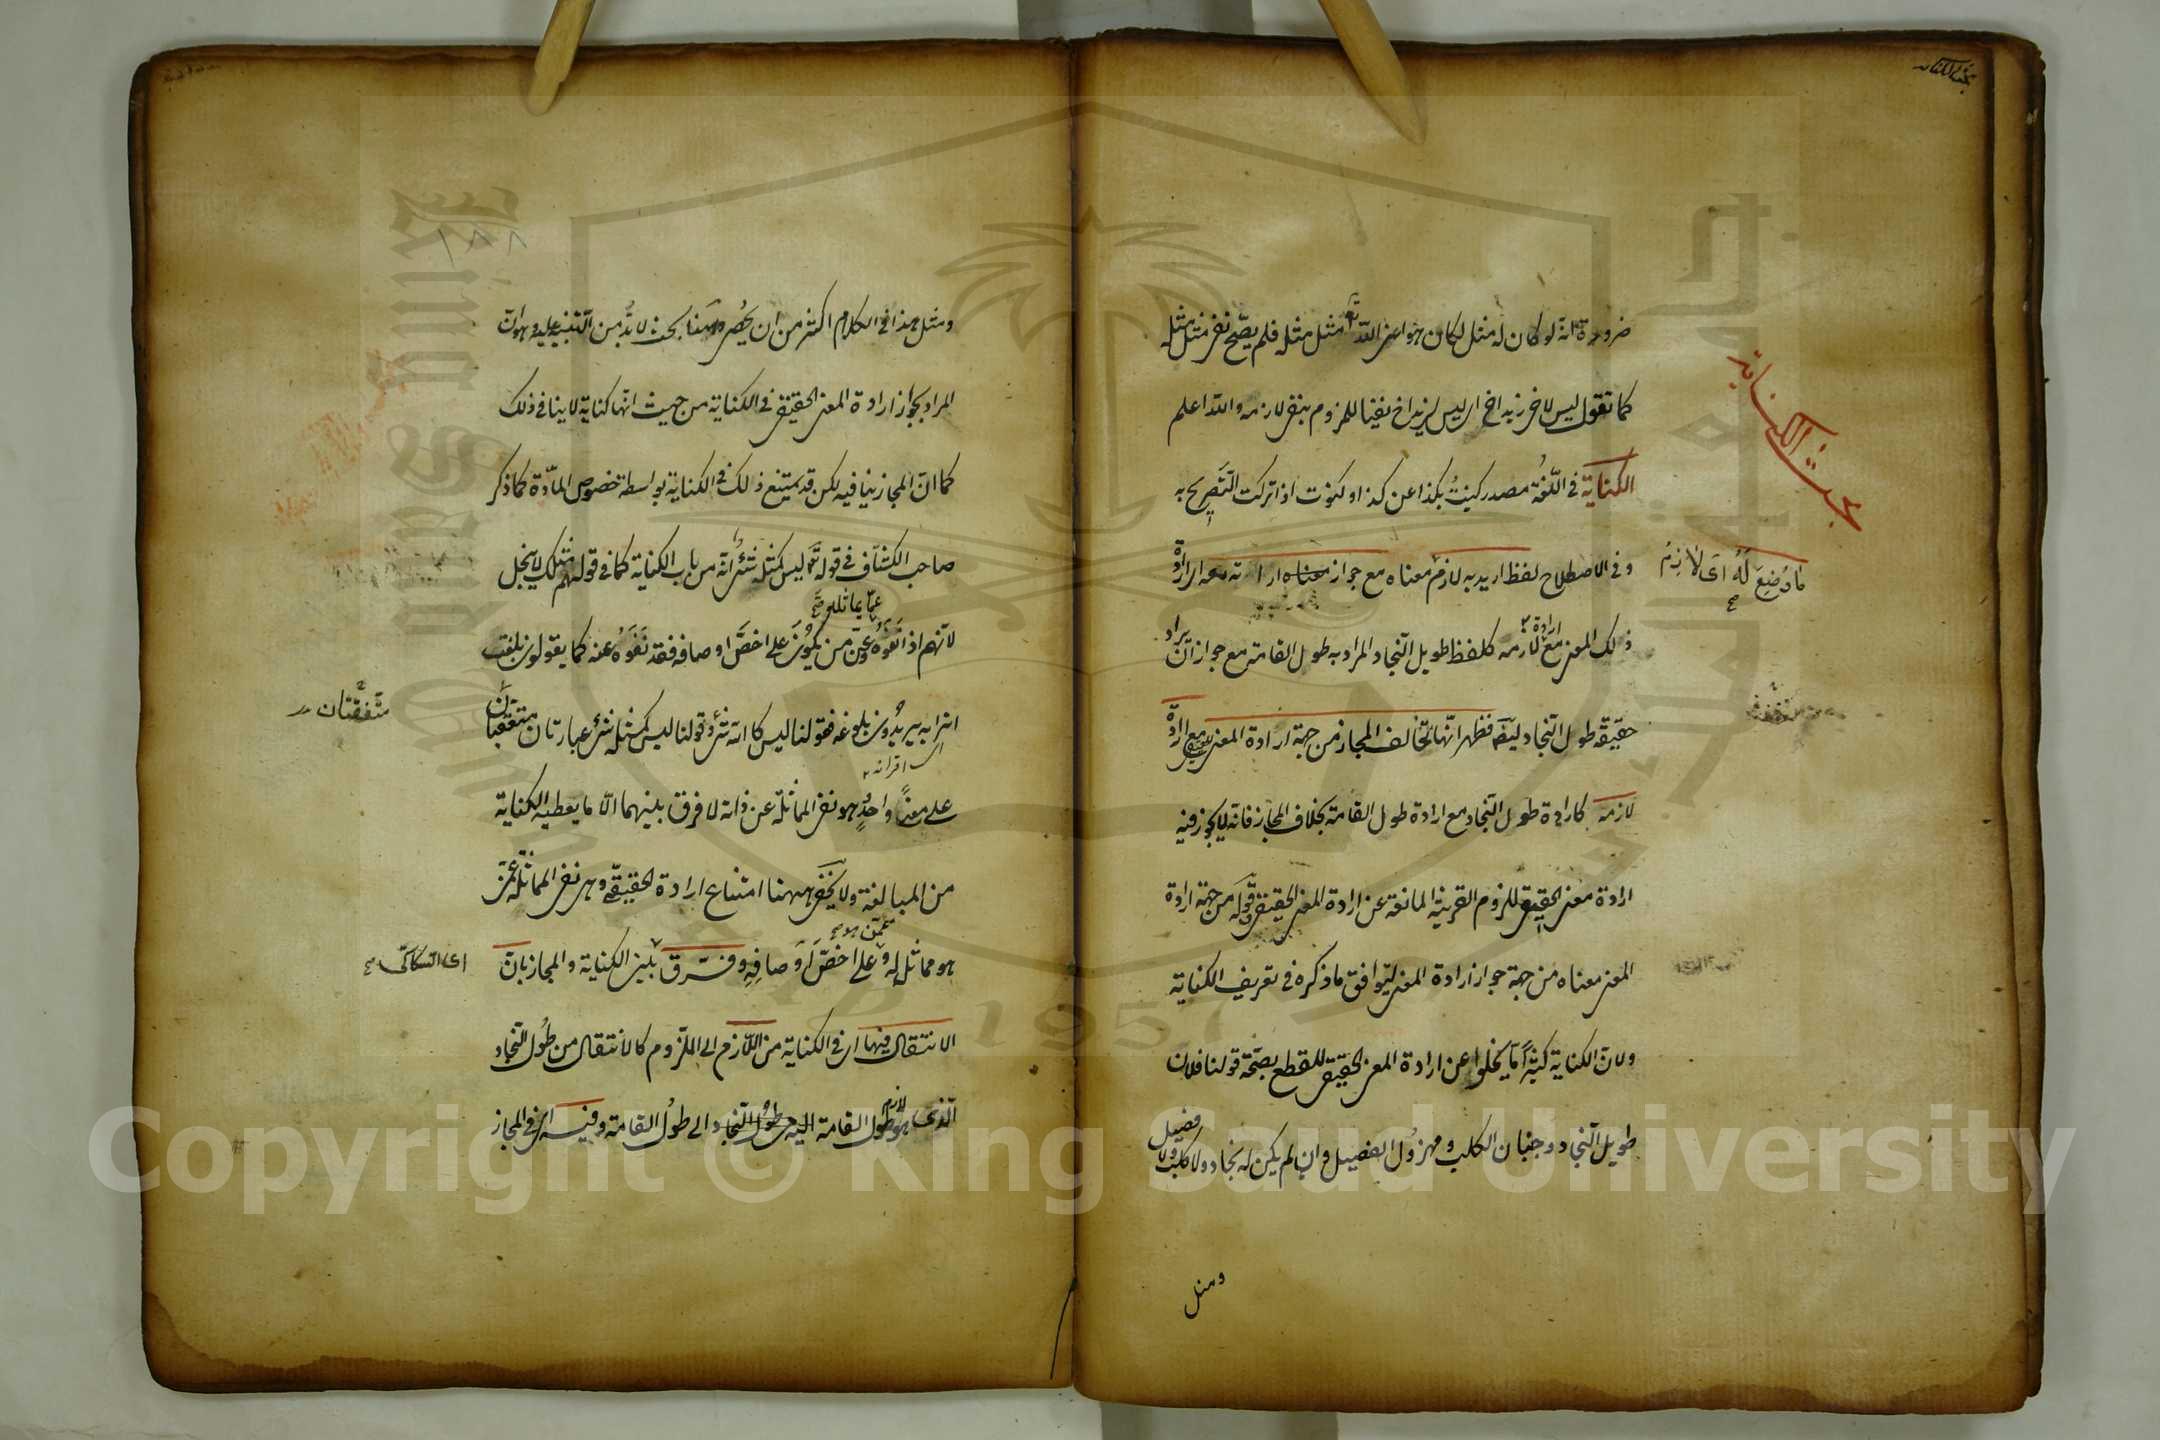 بحث الكناية
ضرورة انه لو كان له مثل لكان هو اعنى الله تع مثل مثله فلم يصح نفى مثل مثله
كما تقول ليس لاخى زيد اخ اى ليس لزيد اخ نفيا للملزوم بنفى لازمه والله اعلم
بحث الكناية
الكناية فى اللغة مصدر كنيت بكذا عن كذا او كنوت اذا تركت التصريح به
وفى الاصطلاح لفظ اريد به لازم معناه مع جواز ارادته معه اى ارادة
ما وضع له اى لازم صح
ذلك المعنى مع ارادة لازمه كلفظ طويل النجاد المراد به طول القامة مع جواز ان يراد
حقيقة طول النجاد ايضا فظهر انها تخالف المجاز من جهة ارادة المعنى الحقيقى مع ارادة
لازمه كارادة طول النجاد مع ارادة طول القامة بخلاف المجاز فانه لا يجوز فيه
ارادة معنى الحقيقى للزوم القرينة المانعة عن ارادة المعنى الحقيقى وقوله من جهة ارادة
المعنى معناه من جهة جواز ارادة المعنى ليوافق ما ذكره فى تعريف الكناية
ولان الكناية كثيرا ما يخلوا عن ارادة المعنى الحقيقى للقطع بصحة قولنا فلان
طويل النجاد وجبان الكلب ومهزول الفصيل وان لم يكن له نجاد ولا كلب ولا فصيل
ومثل
١٨٨
ومثل هذا فى الكلام اكثر من ان يحصر وههنا بحث لا بد من التنبيه عليه وهو ان
المراد بجواز ارادة المعنى الحقيقى فى الكناية من حيث انها كناية لا ينافى ذلك
كما ان المجاز ينافيه لكن قد يمتنع ذلك فى الكناية بواسطة خصوص المادة كما ذكر
صاحب الكشاف فى قوله تع ليس كمثله شئ انه من باب الكناية كما فى قولهم مثلك لا يبخل
عما يماثله صح
لانهم اذا نفوه وعمن يكون على اخص اوصافه فقد نفوه عنه كما يقولون بلغت
اترابه يريدون بلوغه فقولنا ليس كالله شئ وقولنا ليس كمثله شئ عبارتان متعقبتان
اى اقرانه
متفقتان
على معنى واحد هو نفى المماثلة عن ذاته لا فرق بينهما الا ما يعطيه الكناية
من المبالغة ولا يخفى ههنا امتناع ارادة الحقيقة وهى نفى المماثلة عمن
هو مماثل له وعلى اخص اوصافه وفرق بين الكناية والمجاز بان
عمن هو صح
اى السكاكى صح
الانتقال فيها اى فى الكناية من اللازم الى الملزوم كالانتقال من طول النجاد
الذى هو لازم طول القامة اليه طول النجاد الى طول القامة وفيه اى فى المجاز
Copyright © King Saud University
1957